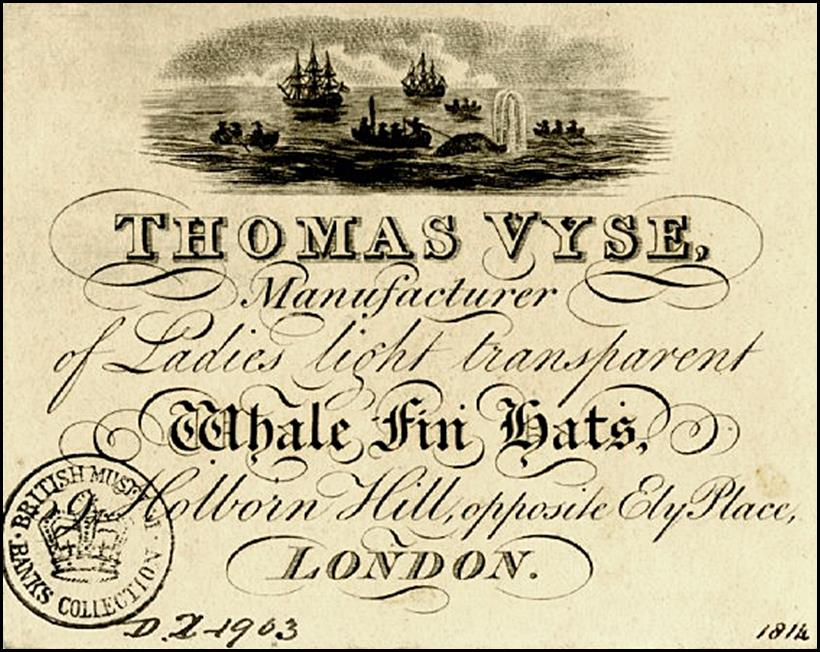 THOMAS VYSE,
Manufacturer
of Ladies light transparent
Whale Fin Hats,
Holborn Hill, opposite Ely Place,
LONDON.
BRITISH MUSEUM
BANKS COLLECTION
1814